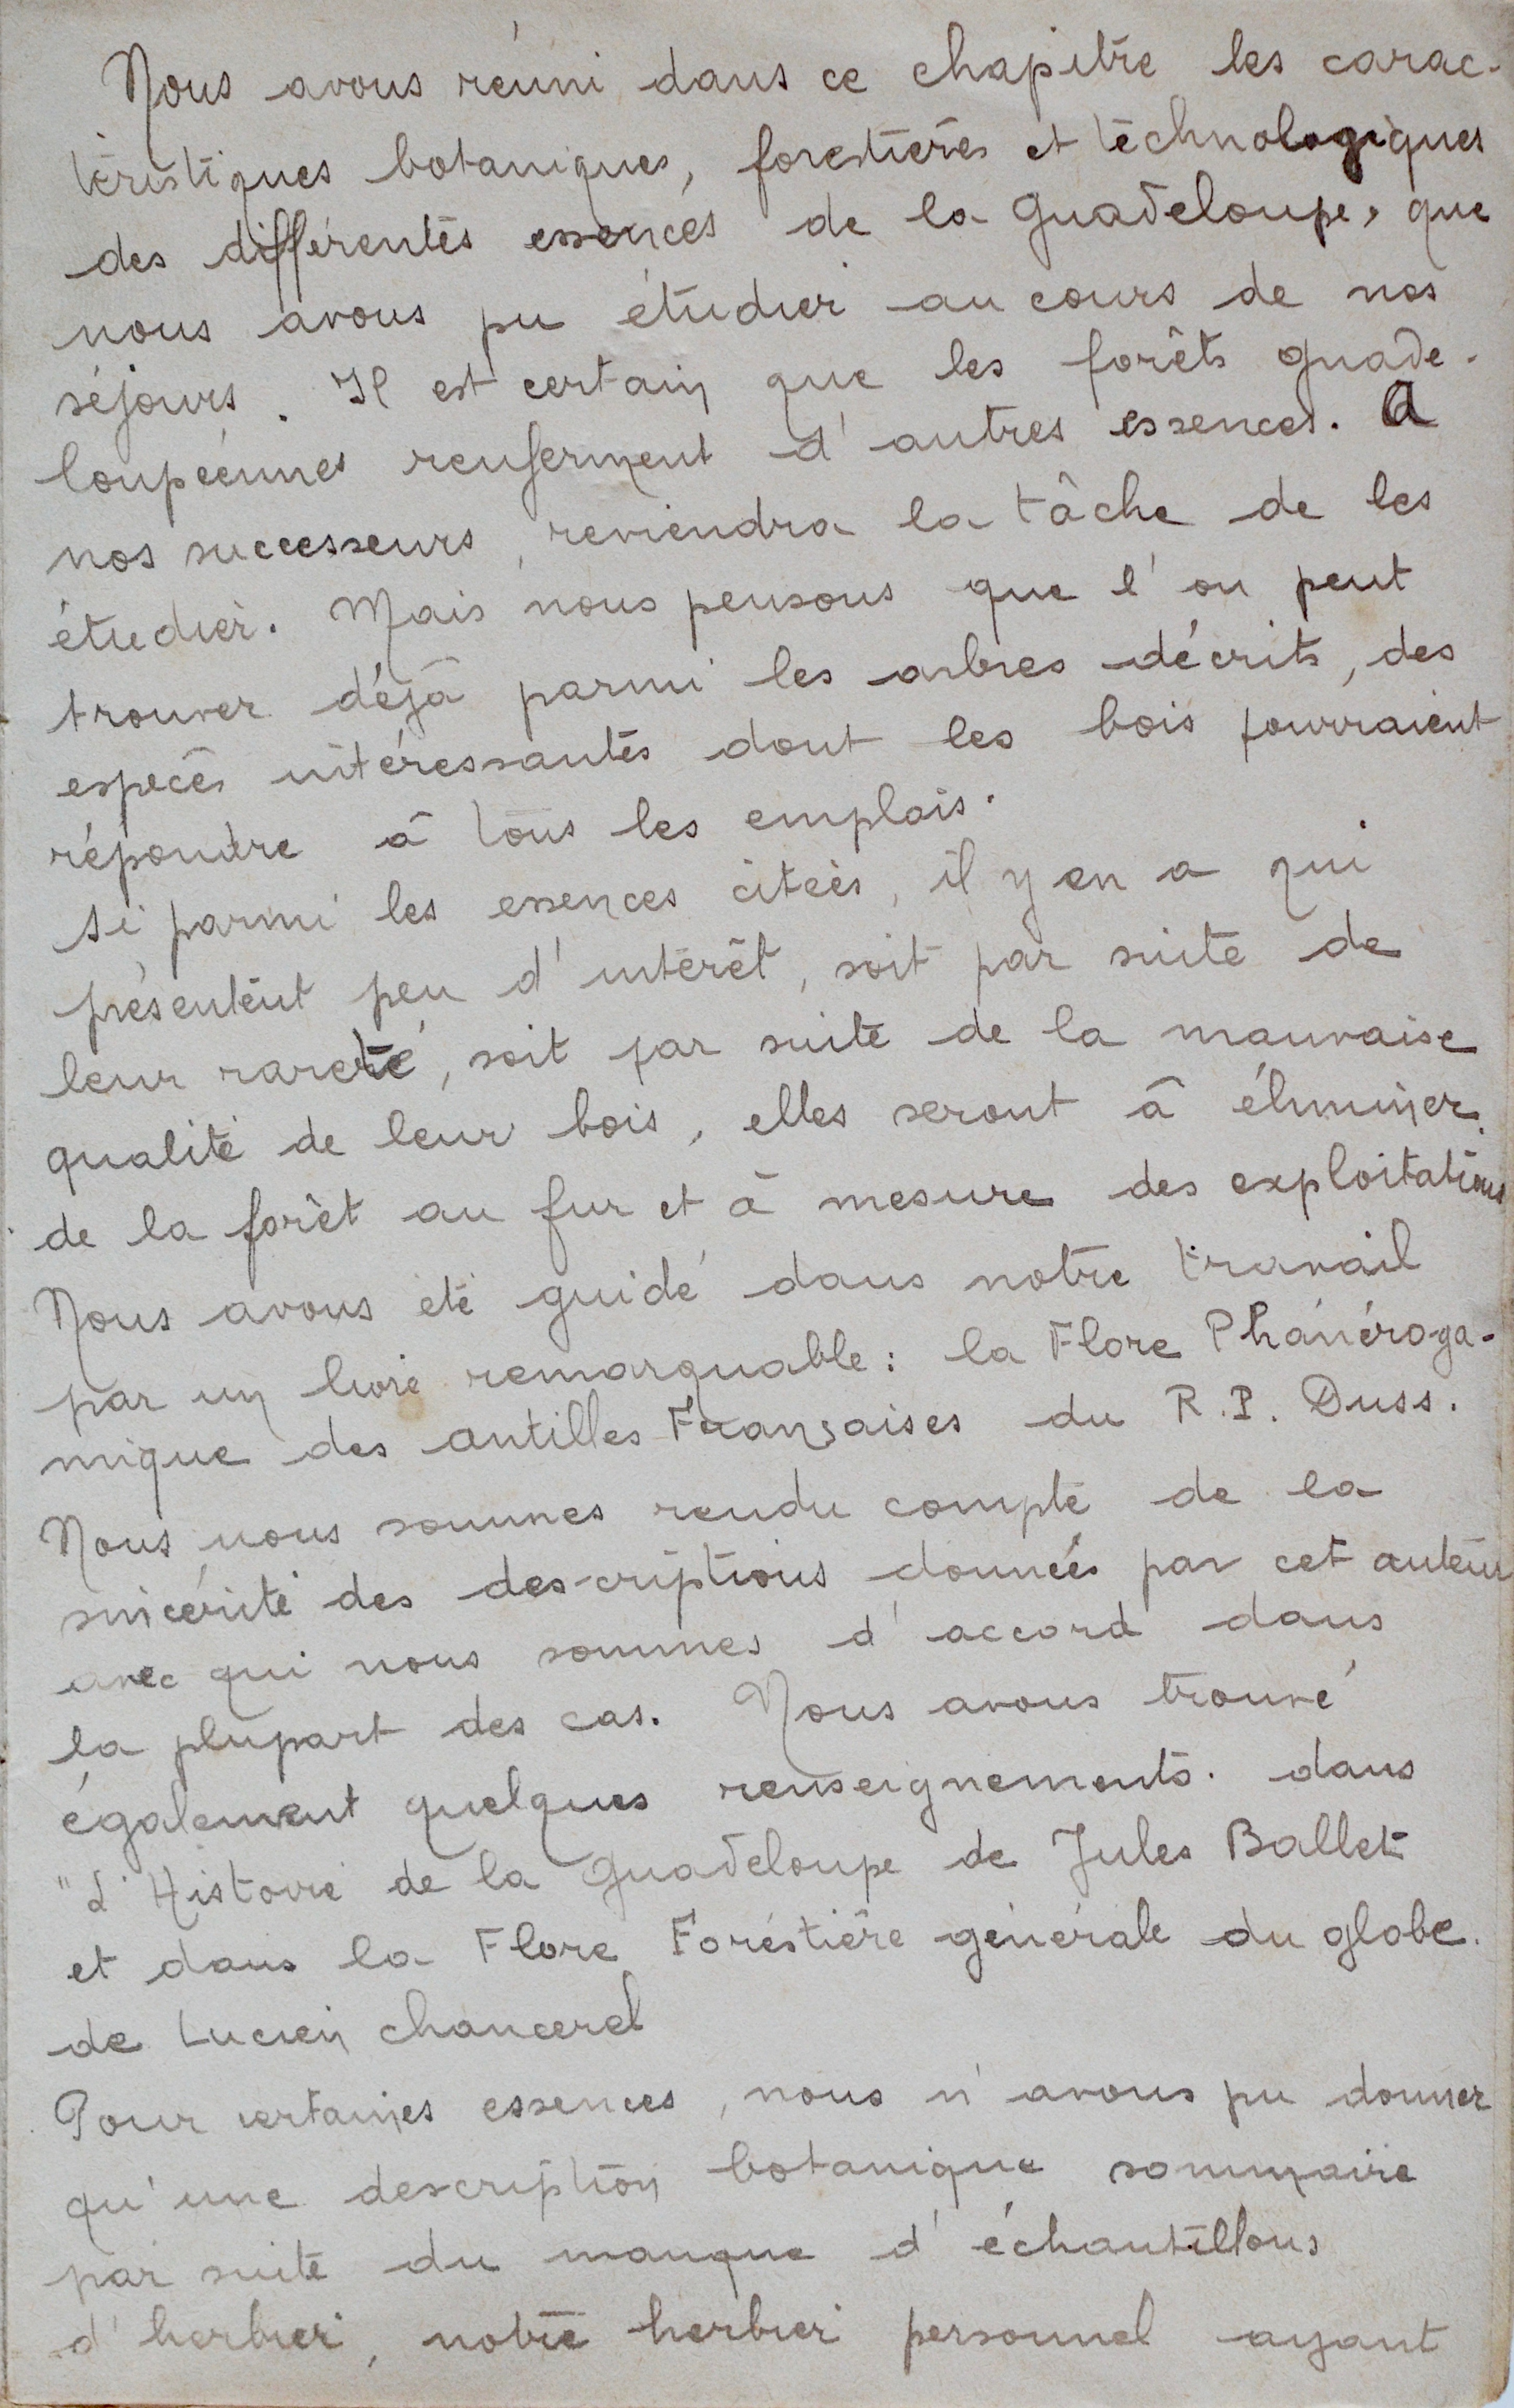 Nous avons réuni dans ce chapitre les carac-
téristiques botaniques, forestières et technologiques
des différentes essences de la Guadeloupe, que
nous avons pu étudier au cours de nos
séjours. Il est certain que les forêts guade-
loupéennes renferment d'autres essences. A
nos successeurs, reviendra la tâche de les
étudier. Mais nous pensons que l'on peut
trouver déjà parmi les arbres décrits, des
espèces intéressantes dont les bois pourraient
répondre à tous les emplois.
Si parmi les essences citées, il y en a qui
présentent peu d'intérêt, soit par suite de
leur rareté, soit par suite de la mauvaise
qualité de leur bois, elles seront à éliminer
de la forêt au fur et à mesure des exploitations
Nous avons été guidé dans notre travail
par un livre remarquable : la Flore Phanéroga-
mique des Antilles Françaises du R.P. Duss.
Nous nous sommes rendu compte de la
sincérité des descriptions données par cet auteur
avec qui nous sommes d'accord dans
la plupart des cas. Nous avons trouvé
également quelques renseignements. dans
"L'Histoire de la Guadeloupe de Jules Ballet
et dans la Flore Forestière générale du globe.
de Lucien Chancerel
Pour certaines essences, nous n'avons pu donner
qu'une description botanique sommaire
par suite du manque d'échantillons
d'herbier, notre herbier personnel ayant